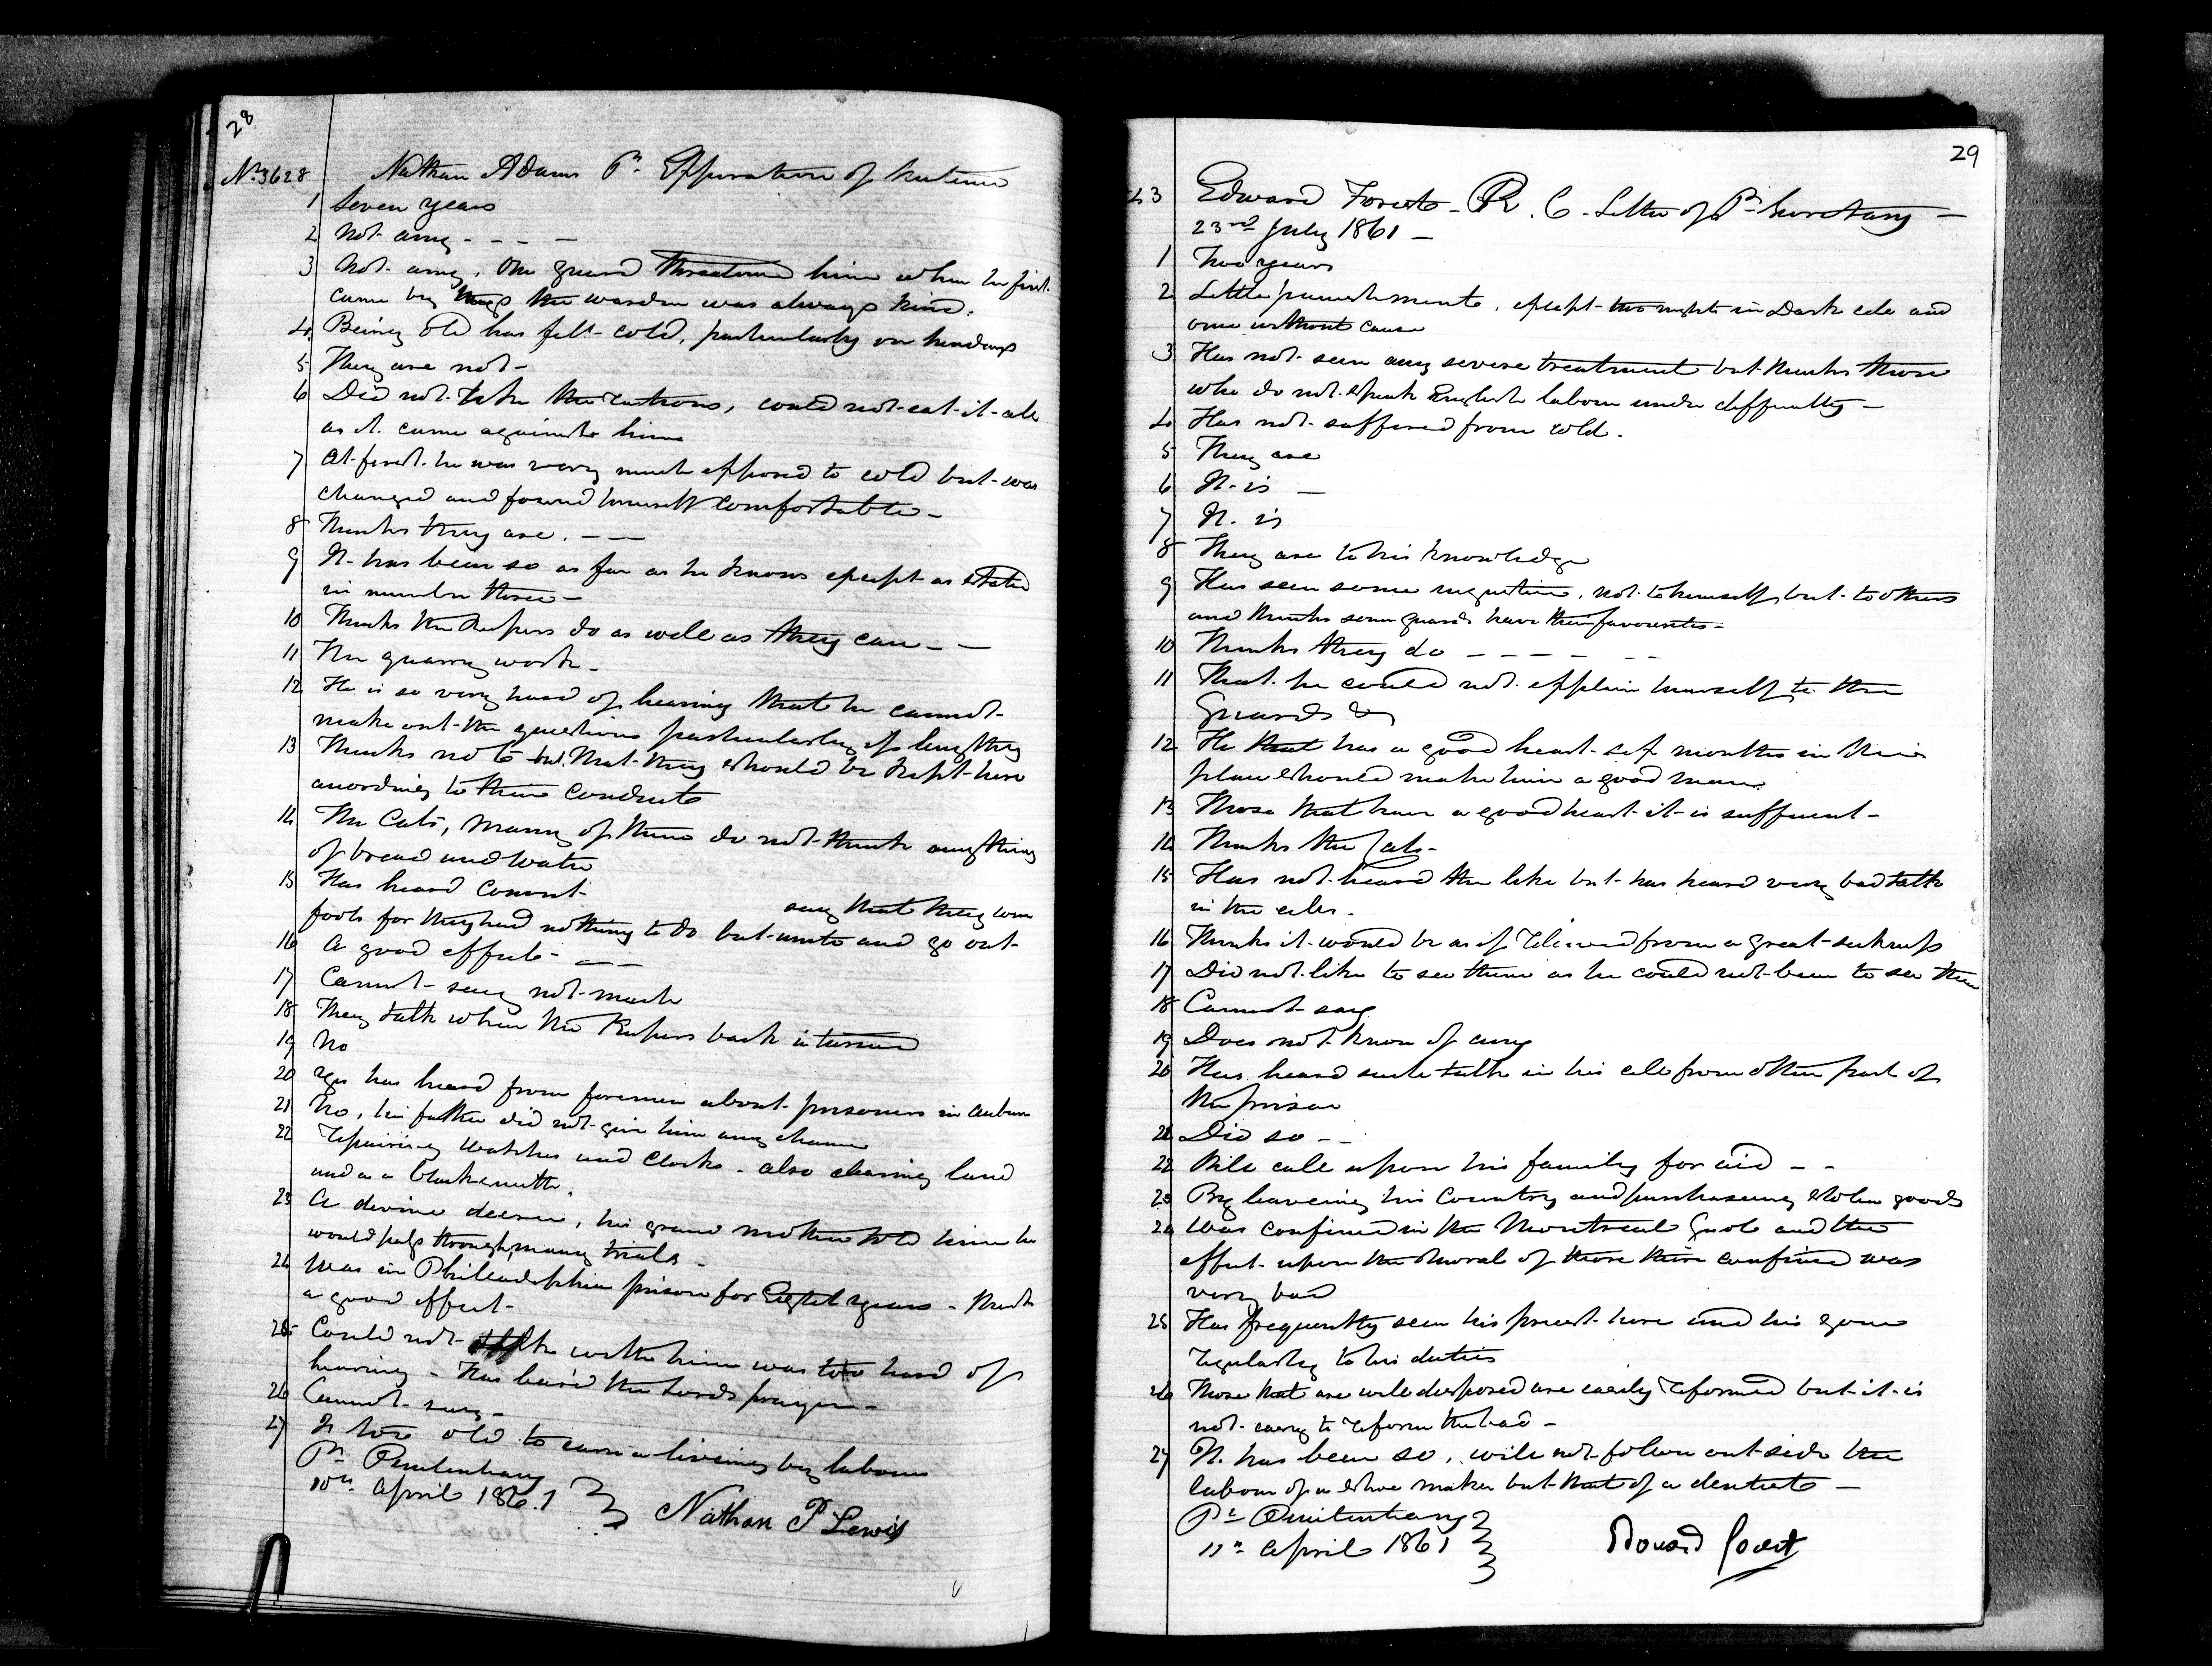 28
No. 3628 Nathan Adams Pr. Expiration of Sentence
1 Seven years
2 Not any - - - -
3 Not any, One guard threatened him when he first
came by the warden was always kind.
4 Being old has felt cold, particularly on Sundays
5 They are not -
6 Did not take the rations, could not eat it all
as it came against him
7 At first he was very much opposed to cold but was
changed and found himself comfortable -
8 Thinks they are. - -
9 It has been so as far as he knows except as stated
in number three -
10 Thinks the Keepers do as well as they can - -
11 The quarry work -
12 He is so very hard of hearing that he cannot
make out the questions particularly if lengthy
13 Thinks not but that they should be kept here
according to their conduct
14 The Cats, many of them do not think anything
of bread and water
15 Has heard convict say that they were
fools for they had nothing to do but unite and go out -
16 A good effect - - -
17 Cannot say not much
18 They talk when the Keepers back is turned
19 No
20 Yes has heard from foremen about prisoners in Auburn
21 No, his father did not give him any chance
22 Repairing Watches and Clocks - also clearing land
and as a blacksmith.
23 A divine decree, his grand mother told him he
would pass through many trials -
24 Was in Philladelphia prison for Eight years - Think
a good effect -
25 Could not talk with him was too hard of
hearing - Has learned the Lords prayer -
26 Cannot say -
27 Is too old to earn a living by labour
Pr. Penitentiary
10th April 1861 Nathan P Lewis
29
43 Edward Forest - R. C. - Letter of Pr. Secretary -
23rd July 1861 -
1 Two years
2 Little punishment, except two nights in Dark cell and
one without cause
3 Has not seen any severe treatment but thinks those
who do not speak English labour under difficulty -
4 Has not suffered from cold.
5 They are
6 It is -
7 It is
8 They are to his knowledge
9 Has seen some injustice, not to himself but to others
and thinks some guards have their favourites -
10 Thinks they do - - - - - -
11 That he could not explain himself to the
Guards &c
12 He that has a good heart six months in this
place should make him a good man.
13 Those that have a good heart it is sufficient -
14 Thinks the Cats -
15 Has not heard the like but has heard very bad talk
in the cells.
16 Thinks it would be as if relieved from a great sickness
17 Did not like to see them as he could not bear to see them
18 Cannot say
19 Does not know of any
20 Has heard such talk in his cell from other part of
the prison
21 Did so - -
22 Will call upon his family for aid - -
23 By leaveing his Country and purchaseing stolen goods
24 Was confined in the Montreal Gaol and the
effect upon the moral of those there confined was
very bad
25 Has frequently seen his priest here and has gone
regularly to his duties
26 Those that are well disposed are easily reformed but it is
not easy to reform the bad -
27 It has been so, will not follow out side the
labour of a shoe maker but that of a dentist -
Pr. Penitentiary
11th April 1861 Edouard Forest